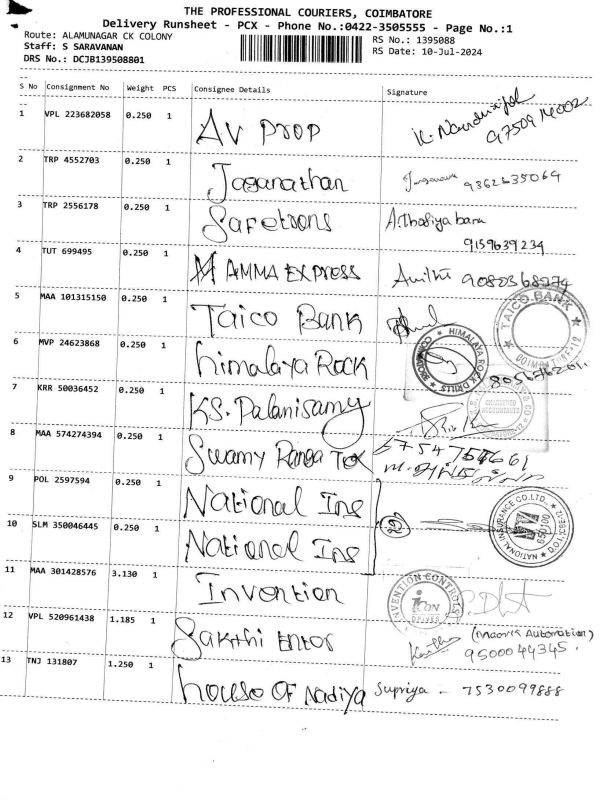 THE PROFESSIONAL COURIERS, COIMBATORE
Delivery Runsheet - PCX - Phone No.:0422-3505555 - Page No.:1
Route: ALAMUNAGAR CK COLONY
RS No.: 1395088
Staff: S SARAVANAN
RS Date: 10-Jul-2024
DRS No.: DCJB139508801
S No Consignment No Weight PCS Consignee Details Signature
1 VPL 223682058 0.250 1 AV PROP
2 TRP 4552703 0.250 1 Jaganathan 9362635069
3 TRP 2556178 0.250 1 Safetoons
9159639234
4 TUT 699495 0.250 1 AMMA EXPRESS
5 MAA 101315150 0.250 1 Taico Bank
TAICO BANK
6 MVP 24623868 0.250 1 himalaya Rock
HIMALAYA ROCK DRILLS
7 KRR 50036452 0.250 1 KS. Palanisamy
CHARTERED ACCOUNTANTS
8 MAA 574274394 0.250 1 Swamy Ranga Tex
9 POL 2597594 0.250 1 National Ins
10 SLM 350046445 0.250 1 National Ins
NATIONAL INSURANCE CO.LTD.
11 MAA 301428576 3.130 1 Invention
INVENTION CONTROLS
icon
12 VPL 520961438 1.185 1 Sakthi Enter
(Maavis Automation)
9500044345.
13 TNJ 131807 1.250 1 house Of Nadiya Supriya - 7530099888